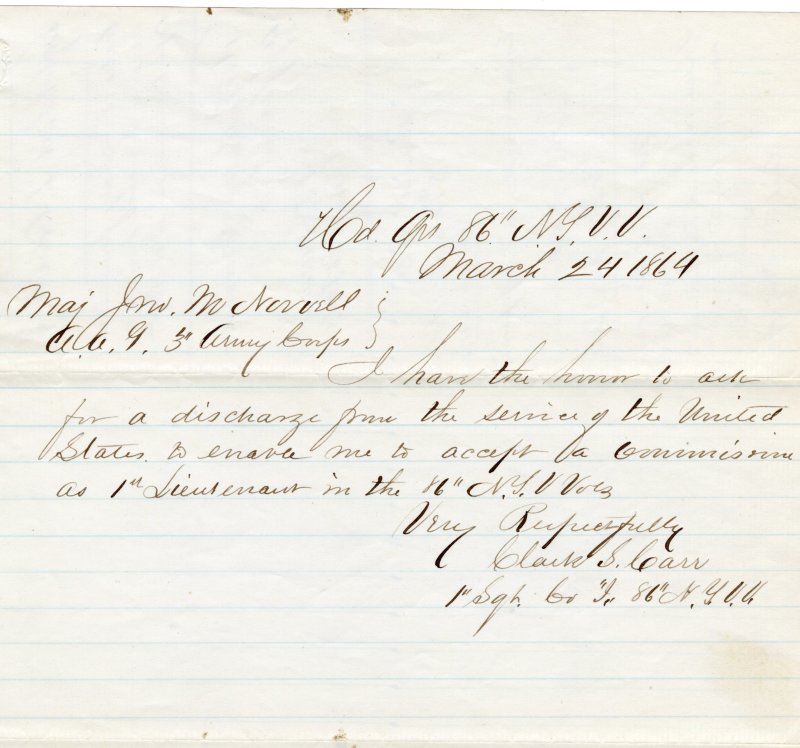 Hd. Qrs 86" N.Y.V.V.
March 24 1864
Maj Jno. M Norvell
A.A.G. 3" Army Corps
I have the honor to ask
for a discharge from the service of the United
States to enable me to accept a Commission
as 1st Lieutenant in the 86" N.Y.V Vols
Very Respectfully
Clark S. Carr
1" Sgt. Co "I" 86" N.Y.V.V.